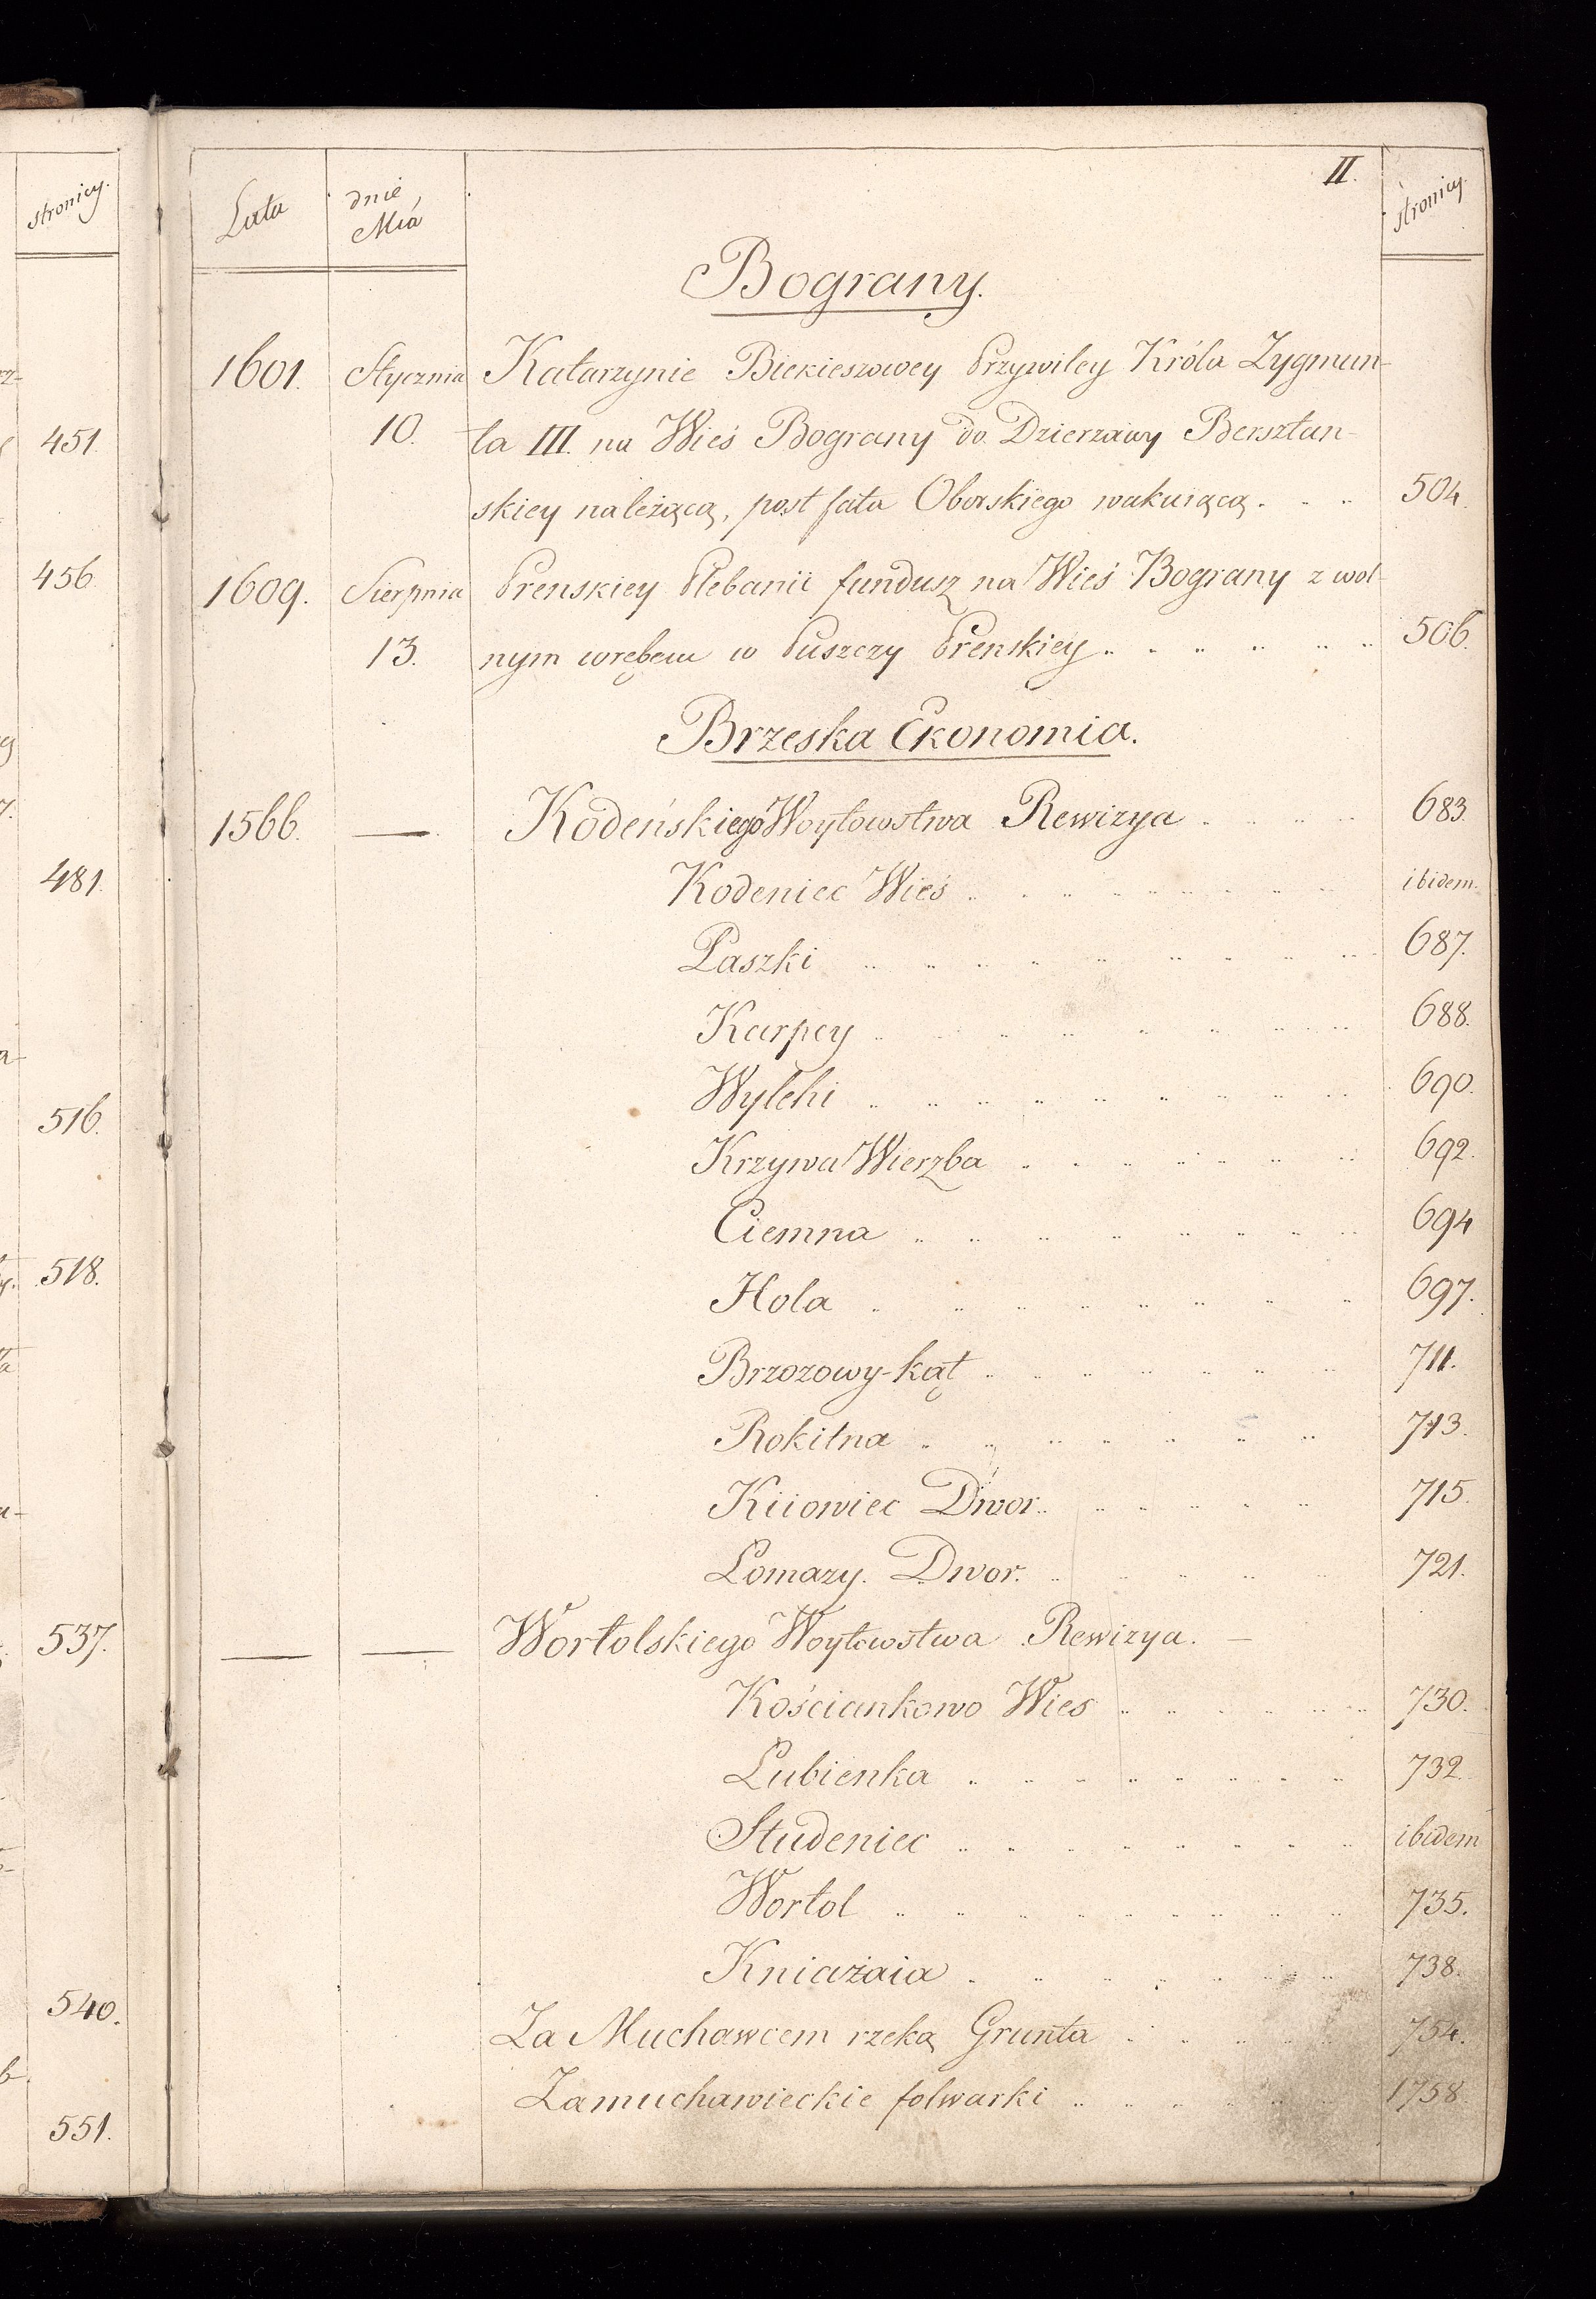 stronicy.
451.
456.
481.
516.
518.
537.
540.
551.
II.
Lata
dnie
Mia
stronicy.
Bograny.
1601. Stycznia Katarzynie Biekieszowey Przywiley Króla Zygmun-
10. ta III. na Wieś Bograny do Dzierzawy Bersztan-
skiey należącą, post fata Oborskiego wakuiącą. 504.
1609. Sierpnia Prenskiey Plebanii fundusz na Wieś Bograny z wol-
13. nym wrębem w Puszczy Prenskiey 506.
Brzeska Ekonomia.
1566. — Kodeńskiego Woytowstwa Rewizya 683.
Kodeniec Wieś ibidem.
Paszki 687.
Karpcy 688.
Wylehi 690.
Krzywa Wierzba 692.
Ciemna 694
Hola 697.
Brzozowy-kąt 711.
Rokitna 713.
Kiiowiec Dwor. 715.
Lomazy. Dwor. 721.
— — Wortolskiego Woytowstwa Rewizya. —
Kościankowo Wies 730.
Lubienka 732.
Studeniec ibidem
Wortol 735.
Kniażaia 738.
Za Muchawcem rzeką Grunta 754.
Zamuchawieckie folwarki 1758.